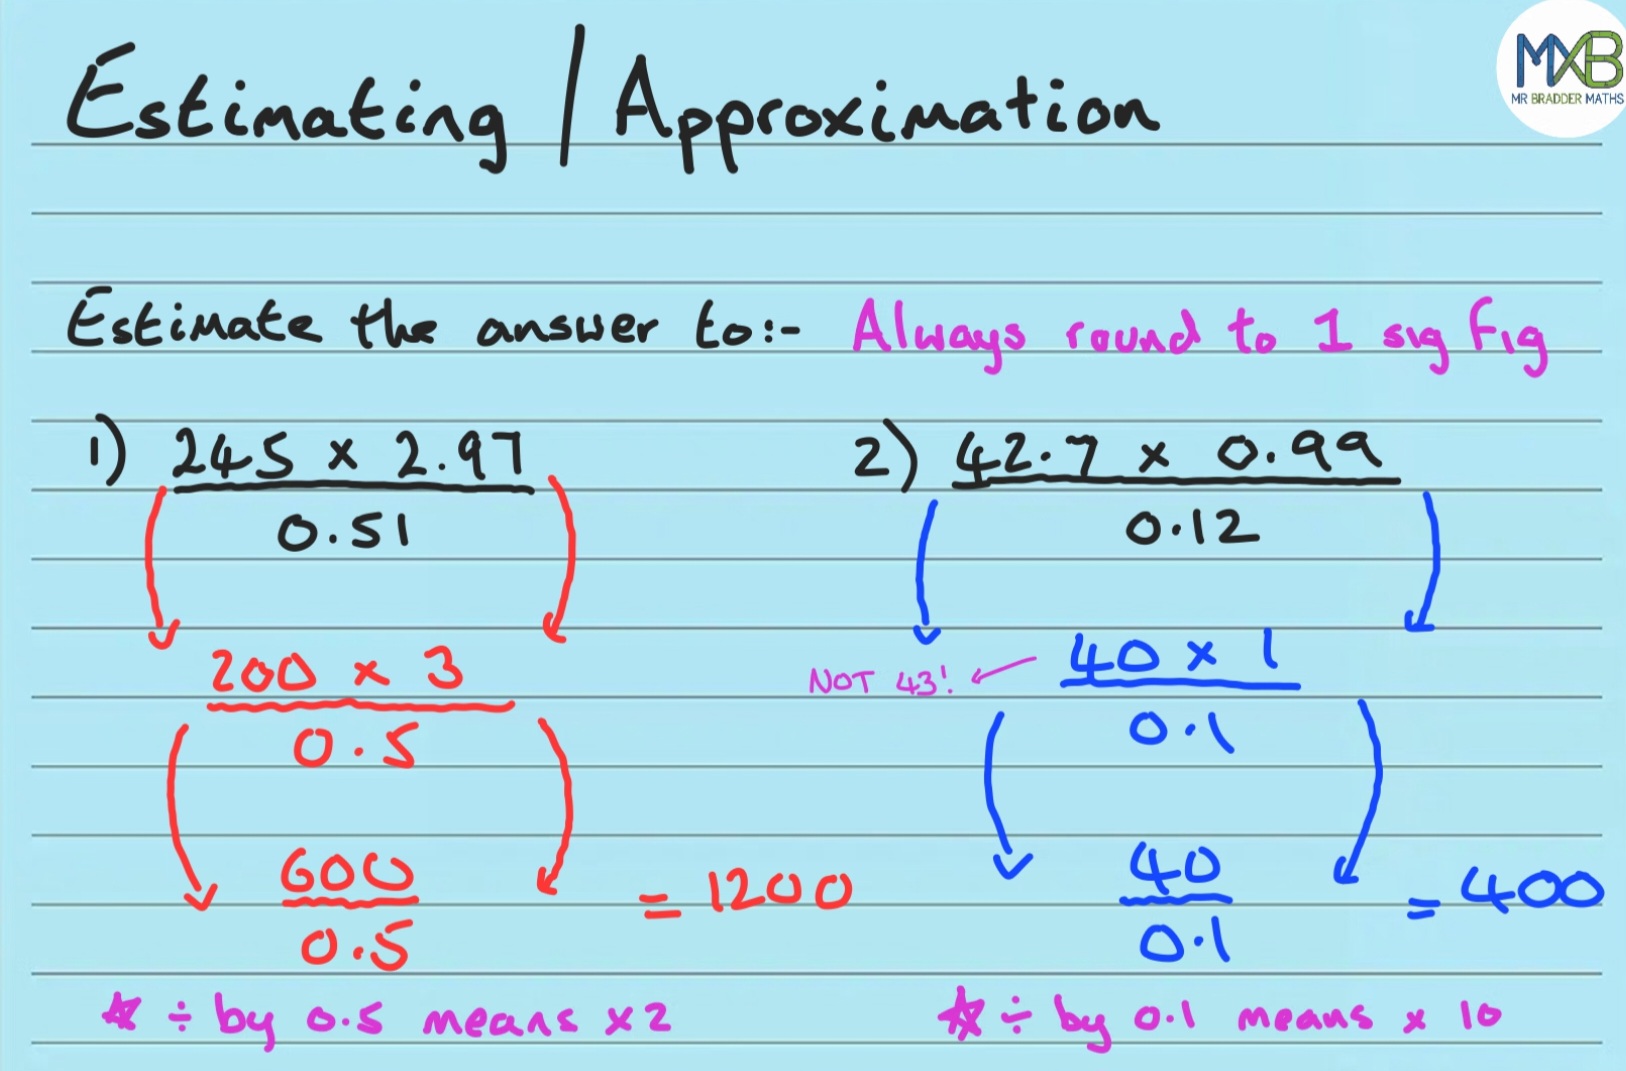 Estimating / Approximation
MXB
MR BRADDER MATHS
Estimate the answer to:- Always round to 1 sig fig
1) 245 x 2.97
0.51
200 x 3
0.5
600
0.5
= 1200
* ÷ by 0.5 means x2
2) 42.7 x 0.99
0.12
40 x 1
NOT 43!
0.1
40
0.1
= 400
* ÷ by 0.1 means x 10